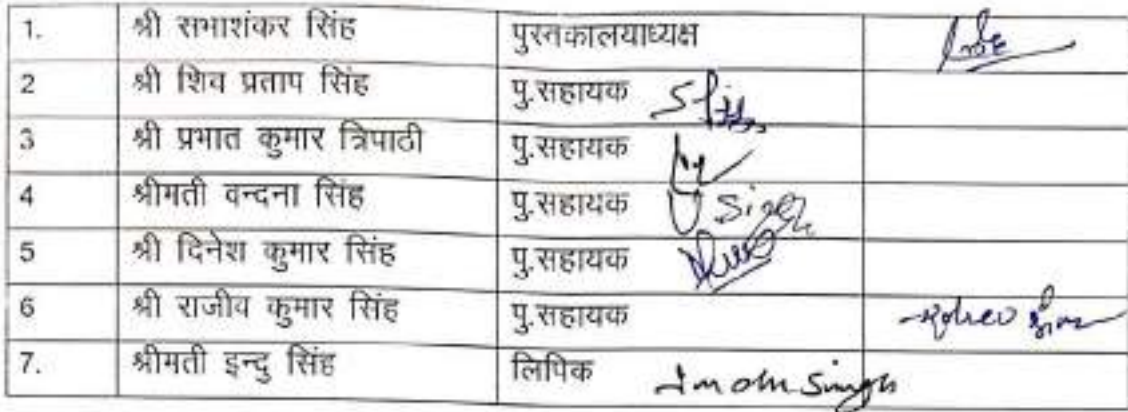 1. श्री सभाशंकर सिंह पुस्तकालयाध्यक्ष
2 श्री शिव प्रताप सिंह पु.सहायक
3 श्री प्रभात कुमार त्रिपाठी पु.सहायक
4 श्रीमती वन्दना सिंह पु.सहायक Singh
5 श्री दिनेश कुमार सिंह पु.सहायक
6 श्री राजीव कुमार सिंह पु.सहायक
7. श्रीमती इन्दु सिंह लिपिक Singh